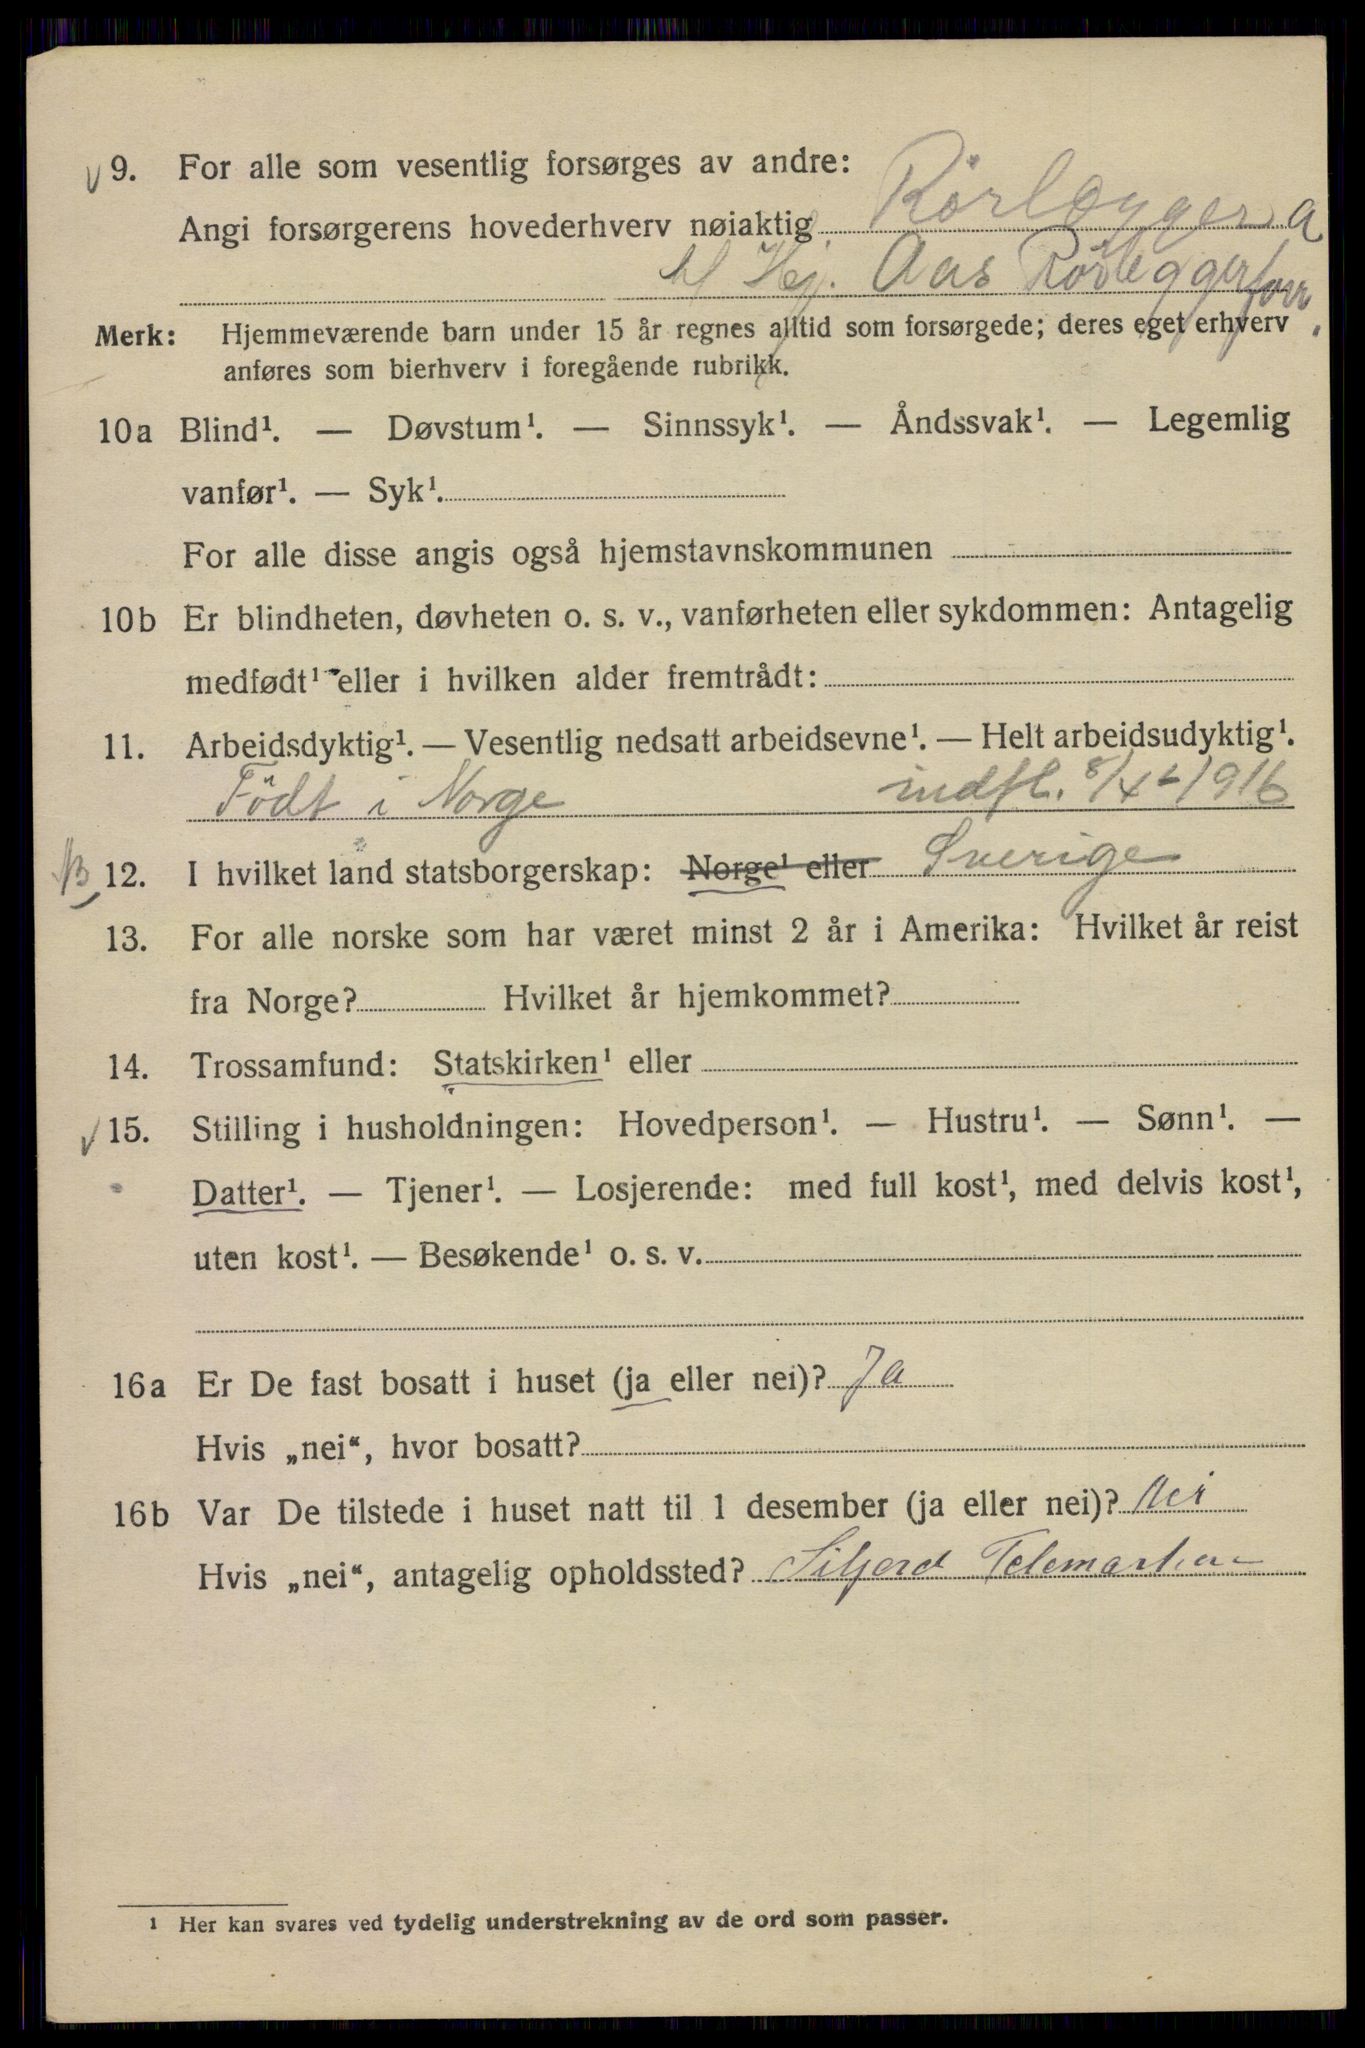 9. For alle som vesentlig forsørges av andre:
Angi forsørgerens hovederhverv nøiaktig Rörlegger a
Hj. Aas Rörleggerforr.
Merk: Hjemmeværende barn under 15 år regnes alltid som forsørgede; deres eget erhverv
anføres som bierhverv i foregående rubrikk.
10a Blind¹. — Døvstum¹. — Sinnssyk¹. — Åndssvak¹. — Legemlig
vanfør¹. — Syk¹.
For alle disse angis også hjemstavnskommunen
10b Er blindheten, døvheten o. s. v., vanførheten eller sykdommen: Antagelig
medfødt¹ eller i hvilken alder fremtrådt:
11. Arbeidsdyktig¹. — Vesentlig nedsatt arbeidsevne¹. — Helt arbeidsudyktig¹.
Födt i Norge indfl. 8/4 1916
12. I hvilket land statsborgerskap: Norge¹ eller Sverige
13. For alle norske som har været minst 2 år i Amerika: Hvilket år reist
fra Norge? Hvilket år hjemkommet?
14. Trossamfund: Statskirken¹ eller
15. Stilling i husholdningen: Hovedperson¹. — Hustru¹. — Sønn¹. —
Datter¹. — Tjener¹. — Losjerende: med full kost¹, med delvis kost¹,
uten kost¹. — Besøkende¹ o. s. v.
16a Er De fast bosatt i huset (ja eller nei)? Ja
Hvis „nei“, hvor bosatt?
16b Var De tilstede i huset natt til 1 desember (ja eller nei)? Nei
Hvis „nei“, antagelig opholdssted? Siljord Telemarken
1 Her kan svares ved tydelig understrekning av de ord som passer.